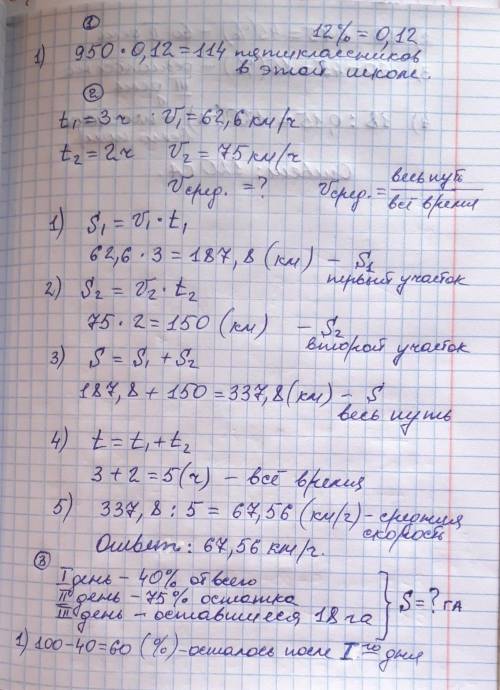 ①
12% = 0,12
1) 950 · 0,12 = 114 пятиклассников
в этой школе.
②
t₁ = 3 ч ; V₁ = 62,6 км/ч
t₂ = 2 ч V₂ = 75 км/ч
Vсред. = ? Vсред. = весь путь / всё время
1) S₁ = V₁ · t₁
62,6 · 3 = 187,8 (км) – S₁
первый участок
2) S₂ = V₂ · t₂
75 · 2 = 150 (км) – S₂
второй участок
3) S = S₁ + S₂
187,8 + 150 = 337,8 (км) – S
весь путь
4) t = t₁ + t₂
3 + 2 = 5 (ч) – всё время
5) 337,8 : 5 = 67,56 (км/ч) – средняя
скорость
Ответ: 67,56 км/ч.
③
I день – 40% от всего
II день – 75% остатка
III день – оставшиеся 18 га } S = ? га
1) 100 – 40 = 60 (%) – осталось после I го дня